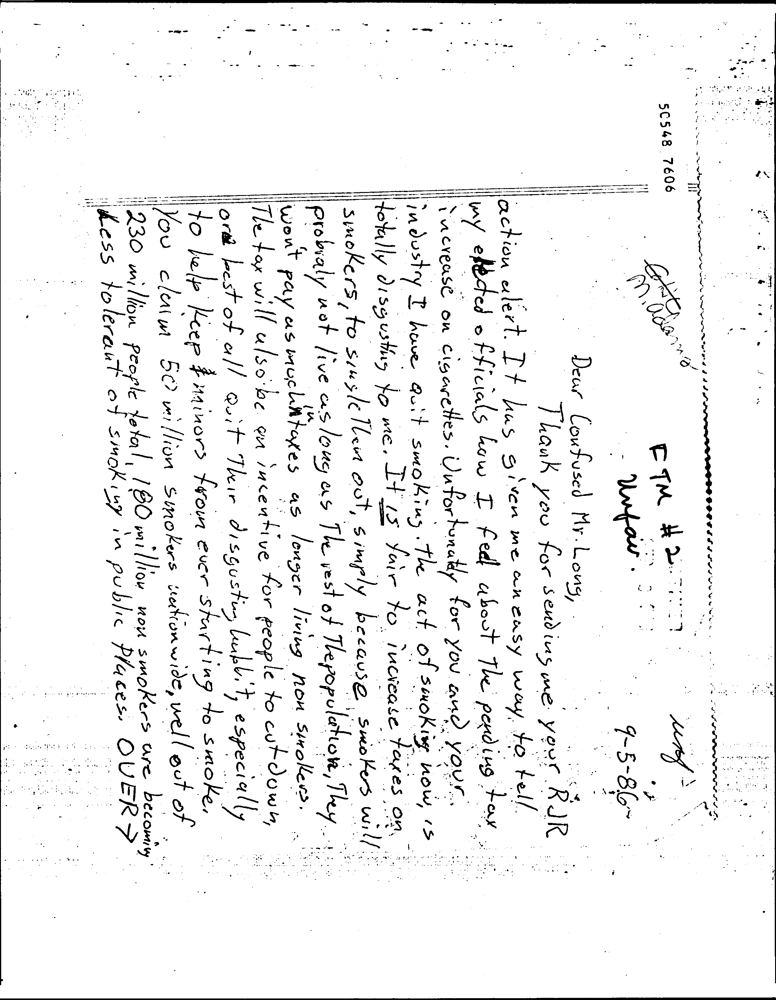 FTM #2
Unfair.
9-5-86
Dear Confused Mr. Long,
Thank you for sending me your RJR
action alert. It has given me an easy way to tell
my elected officials how I feel about the pending tax
increase on cigarettes. Unfortunatly for you and your
industry I have quit smoking. the act of smoking now, is
totally disgusting to me. It is fair to increase taxes on
smokers, to single them out, simply because smokers will
probraly not live as long as The rest of The population, They
won't pay as much in taxes as longer living non smokers.
The tax will also be an incentive for people to cut down,
or best of all quit Their disgusting habbit, especially
to help keep minors from ever starting to smoke.
You claim 50 million smokers nationwide, well out of
230 million people total, 180 million non smokers are becoming
Less tolerant of smoking in public places. OVER →
50548 7606